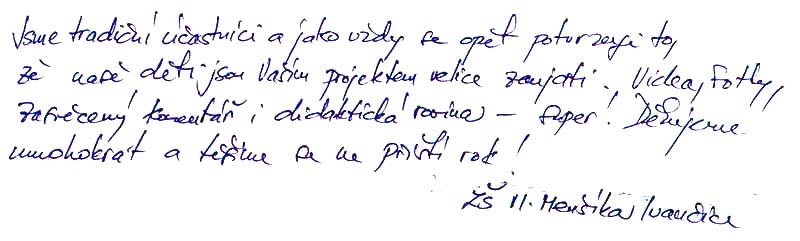 Jsme tradiční účastníci a jako vždy se opět potvrzuje to,
že naše děti jsou Vaším projektem velice zaujati. Videa, fotky,
zasvěcený komentář i didaktická rovina – super! Děkujeme
mnohokrát a těšíme se na příští rok!
ZŠ V. Menšíka, Ivančice